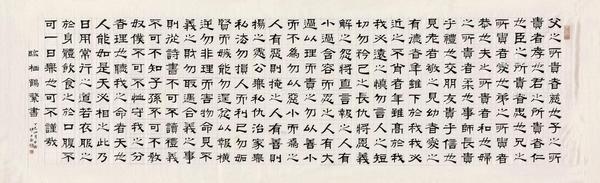 父之所貴者慈也子之所
貴者孝也君之所貴者仁
也臣之所貴者忠也兄之
所貴者愛也弟之所貴者
恭也夫之所貴者和也婦
之所貴者柔也事師長貴
乎禮也交朋友貴乎信也
見老者敬之見幼者愛之
有德者年雖下於我我必
近之不肖者年雖高於我
我必遠之慎勿言人之短
切勿矜己之長仇將恩義
解之怨將直言報之人有
小過含容而忍之人有大
過以理而責之勿以善小
而不為勿以惡小而為之
人有惡則掩之人有善則
揚之處公無私仇治家無
私法勿損人而利己勿妒
賢而嫉能勿逞忿以報橫
逆勿非理而害物命見不
義之財勿取遇合義之事
則從詩書不可不讀禮義
不可不知子孫不可不教
奴僕不可不恤守我之分
者理也聽我之命者天也
人能如是天必相之此乃
日用常行之道若衣服之
於身體飲食之於口腹不
可一日無也可不謹哉